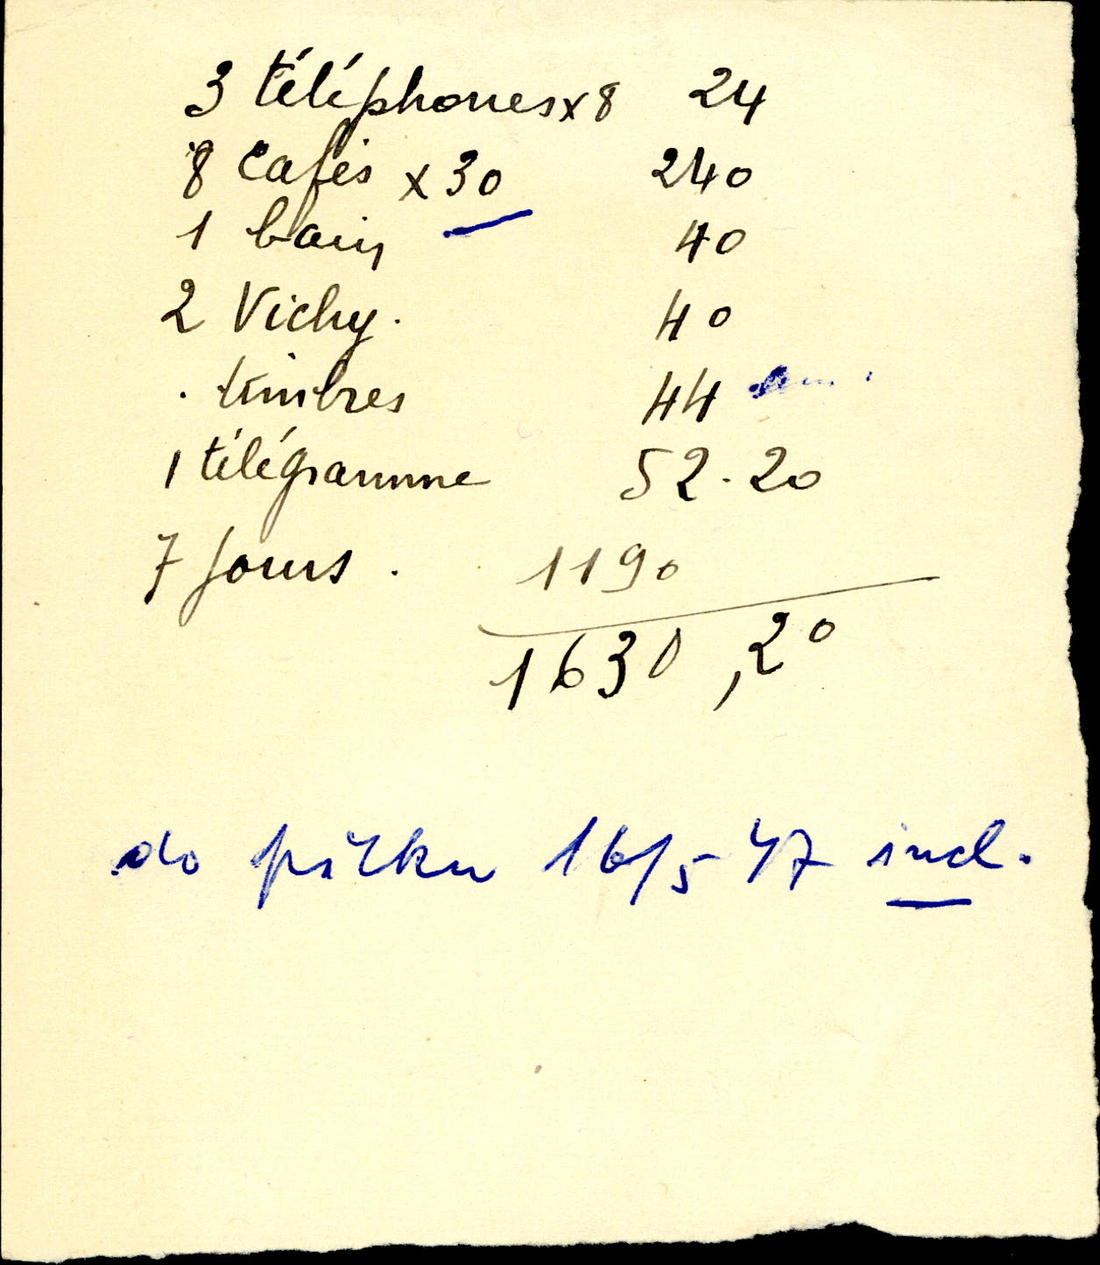 3 téléphones x 8 24
8 cafés x 30 240
1 bain 40
2 Vichy. 40
. timbres 44
1 télégramme 52.20
7 jours . 1190
1630,20
do piątku 16/5 47 incl.